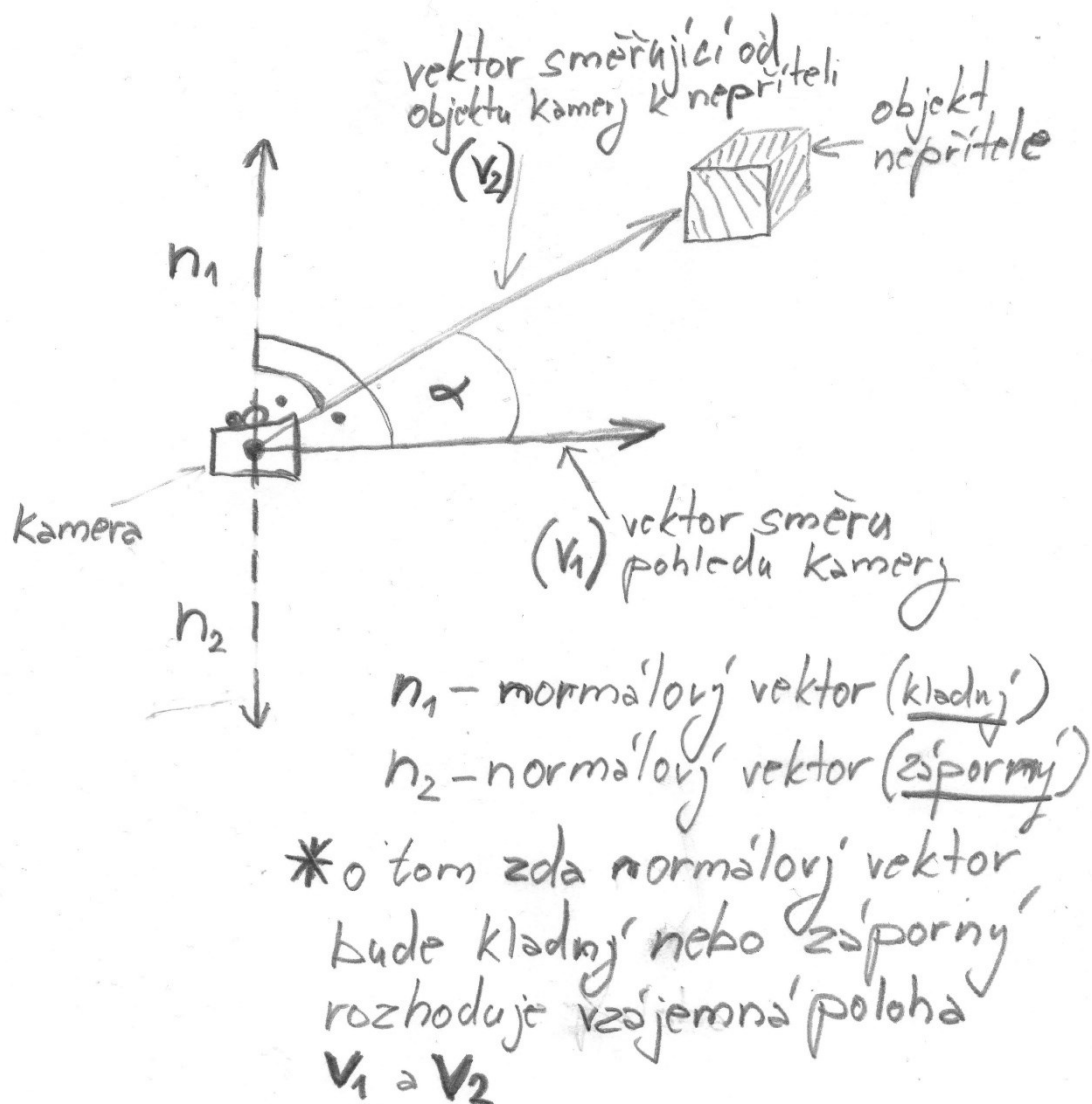 vektor směřující od
objektu kamery k nepříteli
(V₂)
objekt
nepřítele
n₁
α
kamera
(V₁) vektor směru
pohledu kamery
n₂
n₁ – normálový vektor (kladný)
n₂ – normálový vektor (záporný)
* o tom zda normálový vektor
bude kladný nebo záporný
rozhoduje vzájemná poloha
V₁ a V₂